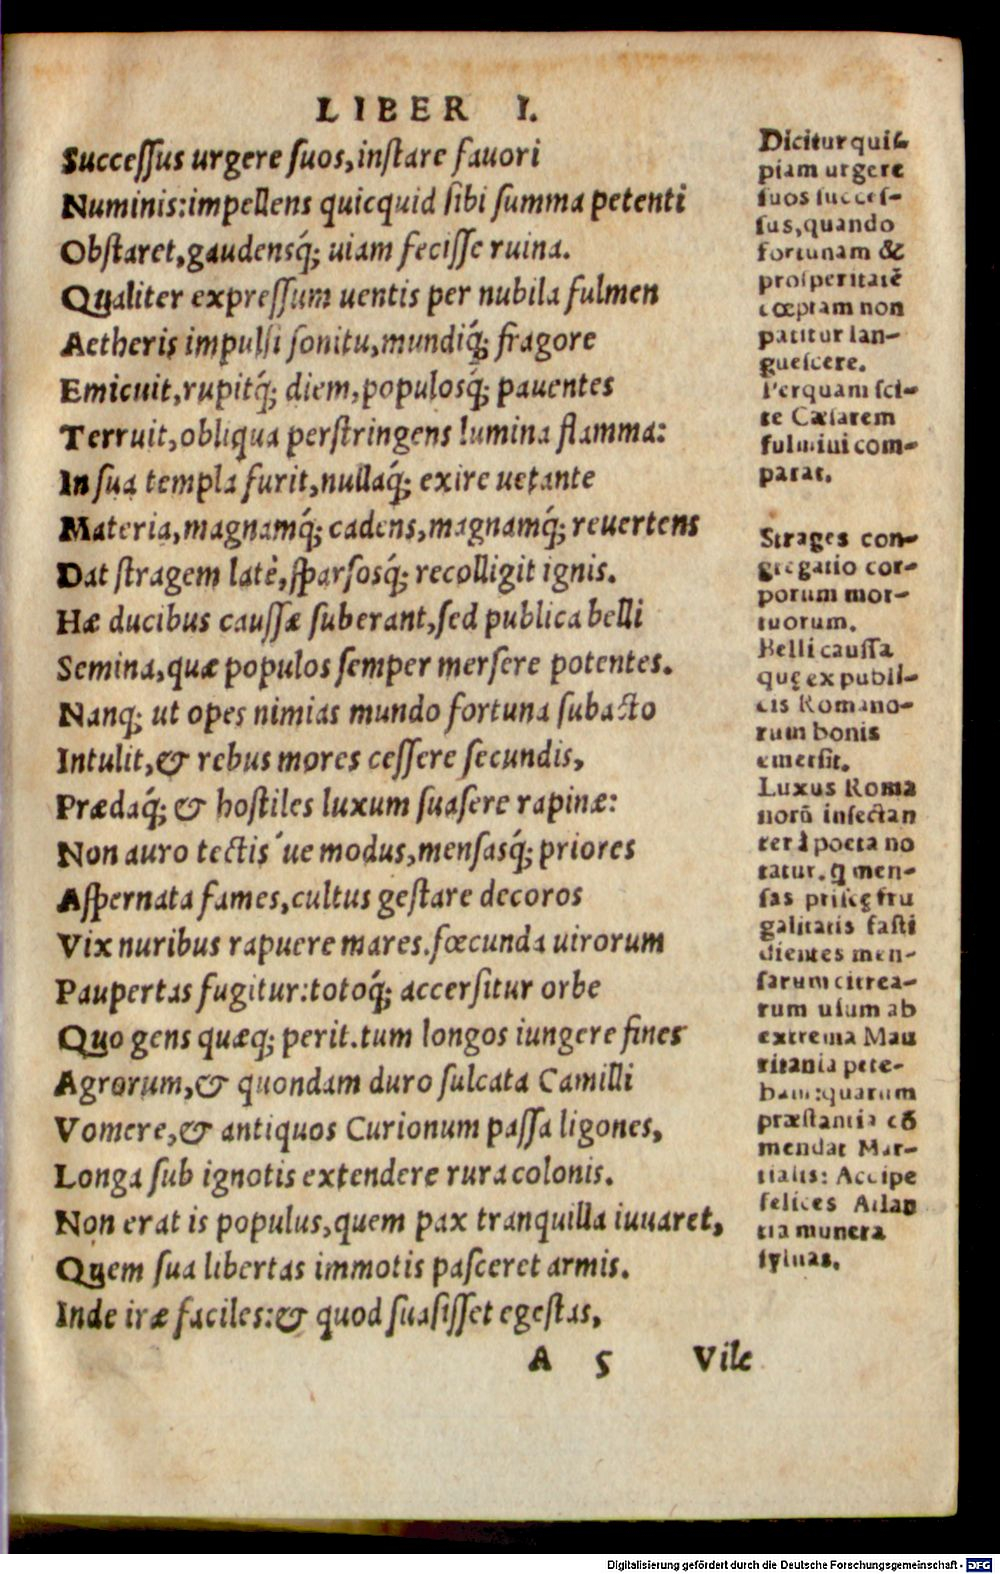 LIBER I.
Succeſſus urgere ſuos,inſtare fauori
Numinis:impellens quicquid ſibi ſumma petenti
Obſtaret,gaudensq́; uiam feciſſe ruina.
Qualiter expreſſum uentis per nubila fulmen
Aetheris impulſi ſonitu,mundiq́; fragore
Emicuit,rupitq́; diem,populosq́; pauentes
Terruit,obliqua perſtringens lumina flamma:
In ſua templa furit,nullaq́; exire uetante
Materia,magnamq́; cadens,magnamq́; reuertens
Dat ſtragem latè,ſparſosq́; recolligit ignis.
Hæ ducibus cauſſæ ſuberant,ſed publica belli
Semina,quæ populos ſemper merſere potentes.
Nanq; ut opes nimias mundo fortuna ſubacto
Intulit,& rebus mores ceſſere ſecundis,
Prædaq́; & hoſtiles luxum ſuaſere rapinæ:
Non auro tectis'ue modus,menſasq́; priores
Aſpernata fames,cultus geſtare decoros
Vix nuribus rapuere mares.fœcunda uirorum
Paupertas fugitur:totoq́; accerſitur orbe
Quo gens quæq; perit.tum longos iungere fines
Agrorum,& quondam duro ſulcata Camilli
Vomere,& antiquos Curionum paſſa ligones,
Longa ſub ignotis extendere rura colonis.
Non erat is populus,quem pax tranquilla iuuaret,
Quem ſua libertas immotis paſceret armis.
Inde iræ faciles:& quod ſuaſiſſet egeſtas,
A 5 Vile
Dicitur quiſ-
piam urgere
ſuos ſucceſ-
ſus,quando
fortunam &
proſperitatē
cœptam non
patitur lan-
gueſcere.
Perquam ſci-
te Cæſarem
fulmini com-
parat.
Strages con-
gregatio cor-
porum mor-
tuorum.
Belli cauſſa
quę ex publi-
cis Romano-
rum bonis
emerſit.
Luxus Roma
norū inſectan
ter à poeta no
tatur.
men-
ſas priſcę fru
galitatis faſti
dientes men-
ſarum citrea-
rum uſum ab
extrema Mau
ritania pete-
bant:quarum
præſtantia cō
mendat Mar-
tialis: Accipe
felices Atlan
tia munera
ſyluas.
Digitalisierung gefördert durch die Deutsche Forschungsgemeinschaft - DFG